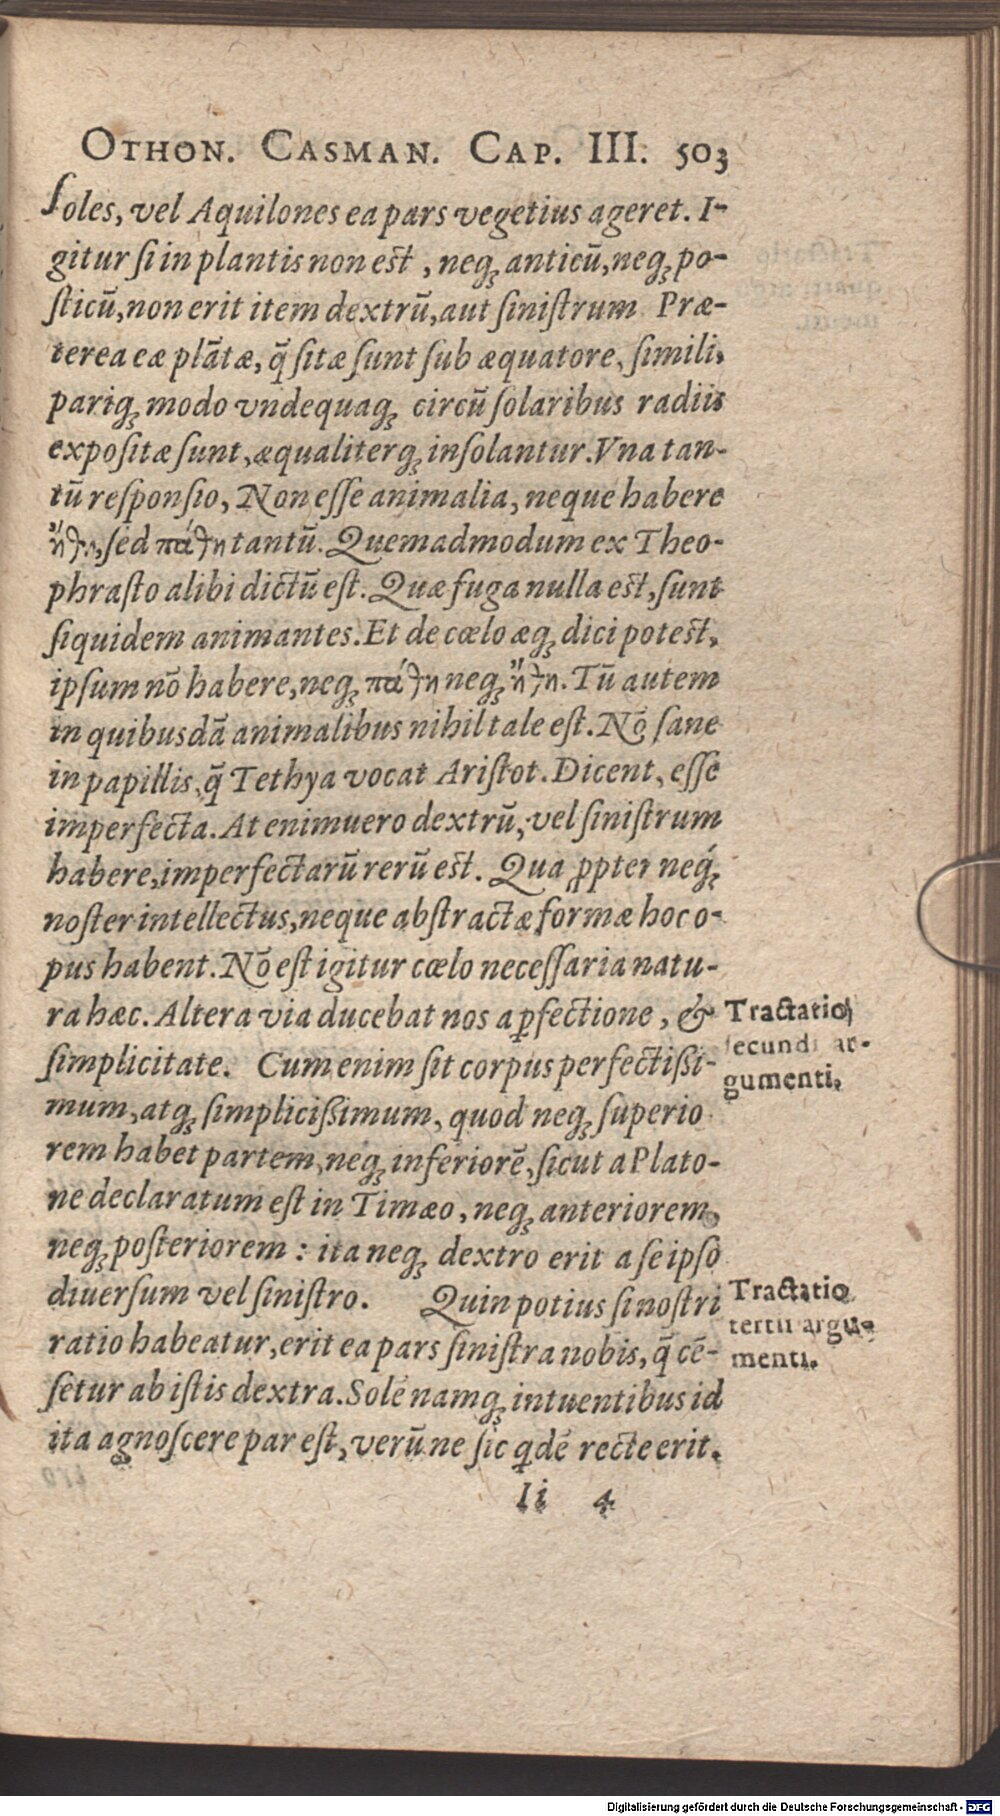 OTHON. CASMAN. CAP. III. 503
ſoles, vel Aquilones ea pars vegetius ageret. I-
gitur ſi in plantis non eſt, neqꝫ anticũ, neqꝫ po-
ſticũ, non erit item dextrũ, aut ſiniſtrum Præ-
terea eæ plãtæ, q̃ ſitæ ſunt ſub æquatore, ſimili,
pariqꝫ modo vndequaqꝫ circũ ſolaribus radiis
expoſitæ ſunt, æqualiterqꝫ inſolantur. Vna tan-
tũ reſponſio, Non eſſe animalia, neque habere
ἤθη, ſed πάθη tantũ. Quemadmodum ex Theo-
phraſto alibi dictũ eſt. Quæ fuga nulla eſt, ſunt
ſiquidem animantes. Et de cœlo æqꝫ dici poteſt,
ipſum nõ habere, neqꝫ πάθη neqꝫ ἤθη. Tũ autem
in quibusdã animalibus nihil tale eſt. Nõ ſane
in papillis, q̃ Tethya vocat Ariſtot. Dicent, eſſe
imperfecta. At enimuero dextrũ, vel ſiniſtrum
habere, imperfectarũ rerũ eſt. Qua ꝓpter neqꝫ
noſter intellectus, neque abſtractæ formæ hoc o-
pus habent. Nõ eſt igitur cœlo neceſſaria natu-
ra hæc. Altera via ducebat nos a ꝑfectione, &
ſimplicitate. Cum enim ſit corpus perfectißi-
mum, atqꝫ ſimplicißimum, quod neqꝫ ſuperio
rem habet partem, neqꝫ inferiorẽ, ſicut a Plato-
ne declaratum eſt in Timæo, neqꝫ anteriorem,
neqꝫ poſteriorem : ita neqꝫ dextro erit a ſe ipſo
diuerſum vel ſiniſtro. Quin potius ſi noſtri
ratio habeatur, erit ea pars ſiniſtra nobis, q̃ cẽ-
ſetur ab iſtis dextra. Solẽ namqꝫ intuentibus id
ita agnoſcere par eſt, verũ ne ſic qdẽ recte erit.
Ii 4
Tractatio
ſecundi ar-
gumenti.
Tractatio
tertii argu-
menti.
Digitalisierung gefördert durch die Deutsche Forschungsgemeinschaft - DFG